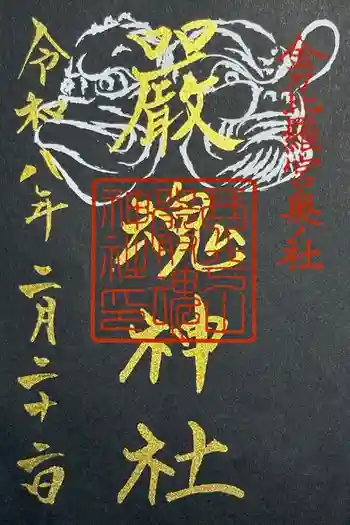 金刀比羅宮奥ノ社
嚴魂神社
令和八年二月二十二日